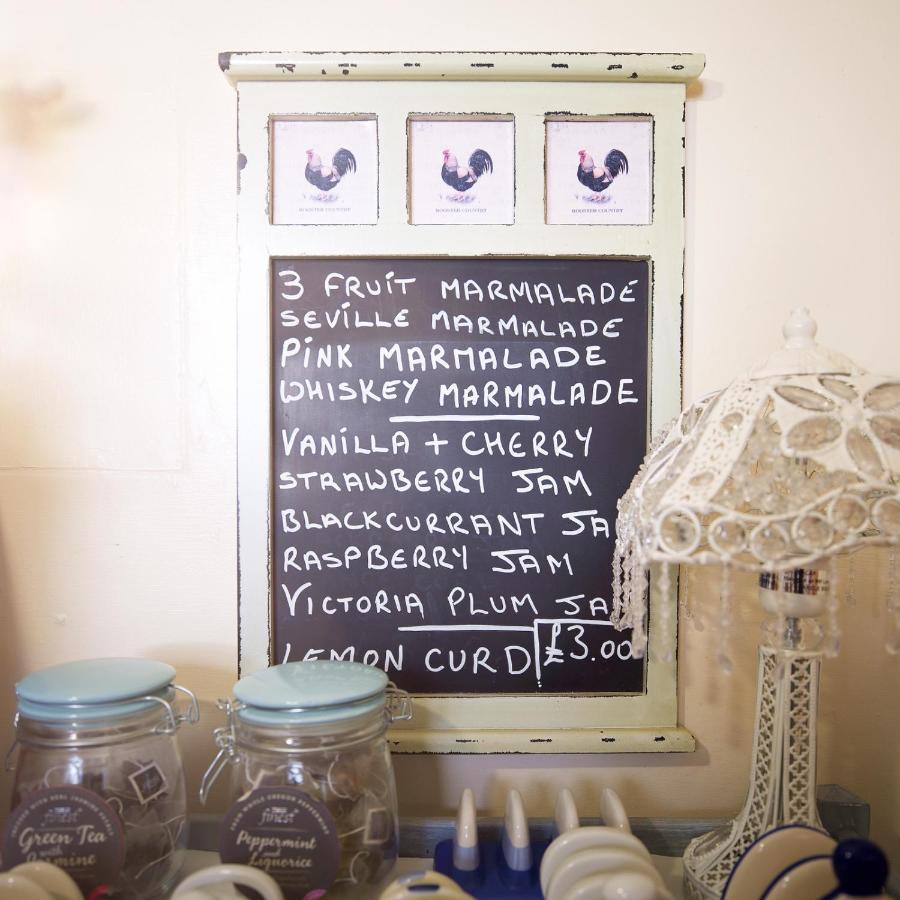 ROOSTER COUNTRY
ROOSTER COUNTRY
ROOSTER COUNTRY
3 FRUiT MARMALADE
SEViLLE MARMALADE
PiNK MARMALADE
WHISKEY MARMALADE
VANiLLA + CHERRY
STRAWBERRY JAM
BLACKCURRANT JA
RASPBERRY JAM
VICTORIA PLUM JA
LEMON CURD £3.00
finest
Green Tea
finest
Peppermint
Liquorice